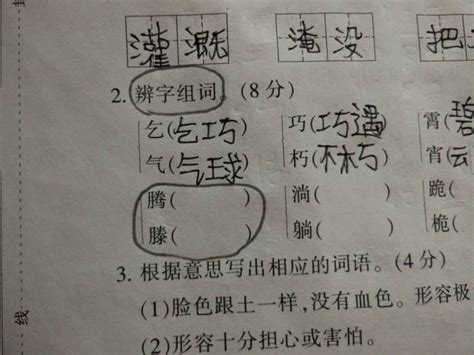 灌溉 淹没 把
2. 辨字组词。(8分)
乞(乞巧) 巧(巧遇) 霄(碧
气(气球) 朽(不朽) 宵(云
腾( ) 淌( ) 跪(
滕( ) 躺( ) 桅(
3. 根据意思写出相应的词语。(4分)
(1)脸色跟土一样,没有血色。形容极
(2)形容十分担心或害怕。
线